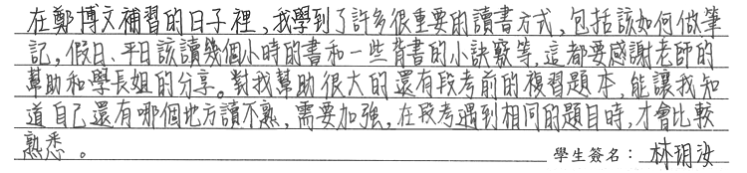 在鄭博文補習的日子裡,我學到了許多很重要的讀書方式,包括該如何做筆
記,假日、平日該讀幾個小時的書和一些背書的小訣竅等,這都要感謝老師的
幫助和學長姐的分享。對我幫助很大的還有段考前的複習題本,能讓我知
道自己還有哪個地方讀不熟,需要加強,在段考遇到相同的題目時,才會比較
熟悉。
學生簽名:林玥汝